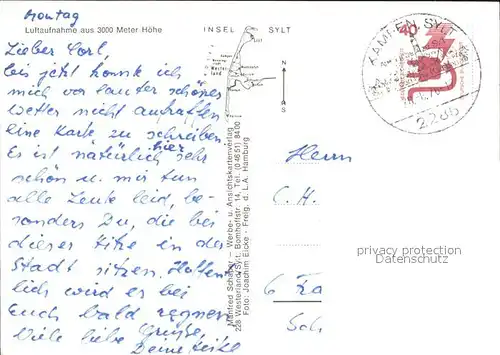 Montag
Luftaufnahme aus 3000 Meter Höhe
INSEL SYLT
Lieber Carl,
bis jetzt konnte ich
mich vor lauter schönes
Wetter nicht aufraffen
eine Karte zu schreiben.
Es ist natürlich hier sehr
schön u. mir tun
alle Leute leid, be-
sonders Du, die bei
dieser Hitze in der
Stadt sitzen. Hoffent
lich wird es bei
Euch bald regnen
Viele liebe Grüße,
Deine
List
Westerland
N
S
40
KAMPEN SYLT
2285
Manfred Werbe- u. Ansichtskartenverlag
228 Westerland/Sylt, Bomhoffstr. 14, Tel. (04651) 8400
Foto: Joachim Eicke - Freig. d. L.A. Hamburg
Herrn
C. H.
6
Sch
privacy protection
Datenschutz